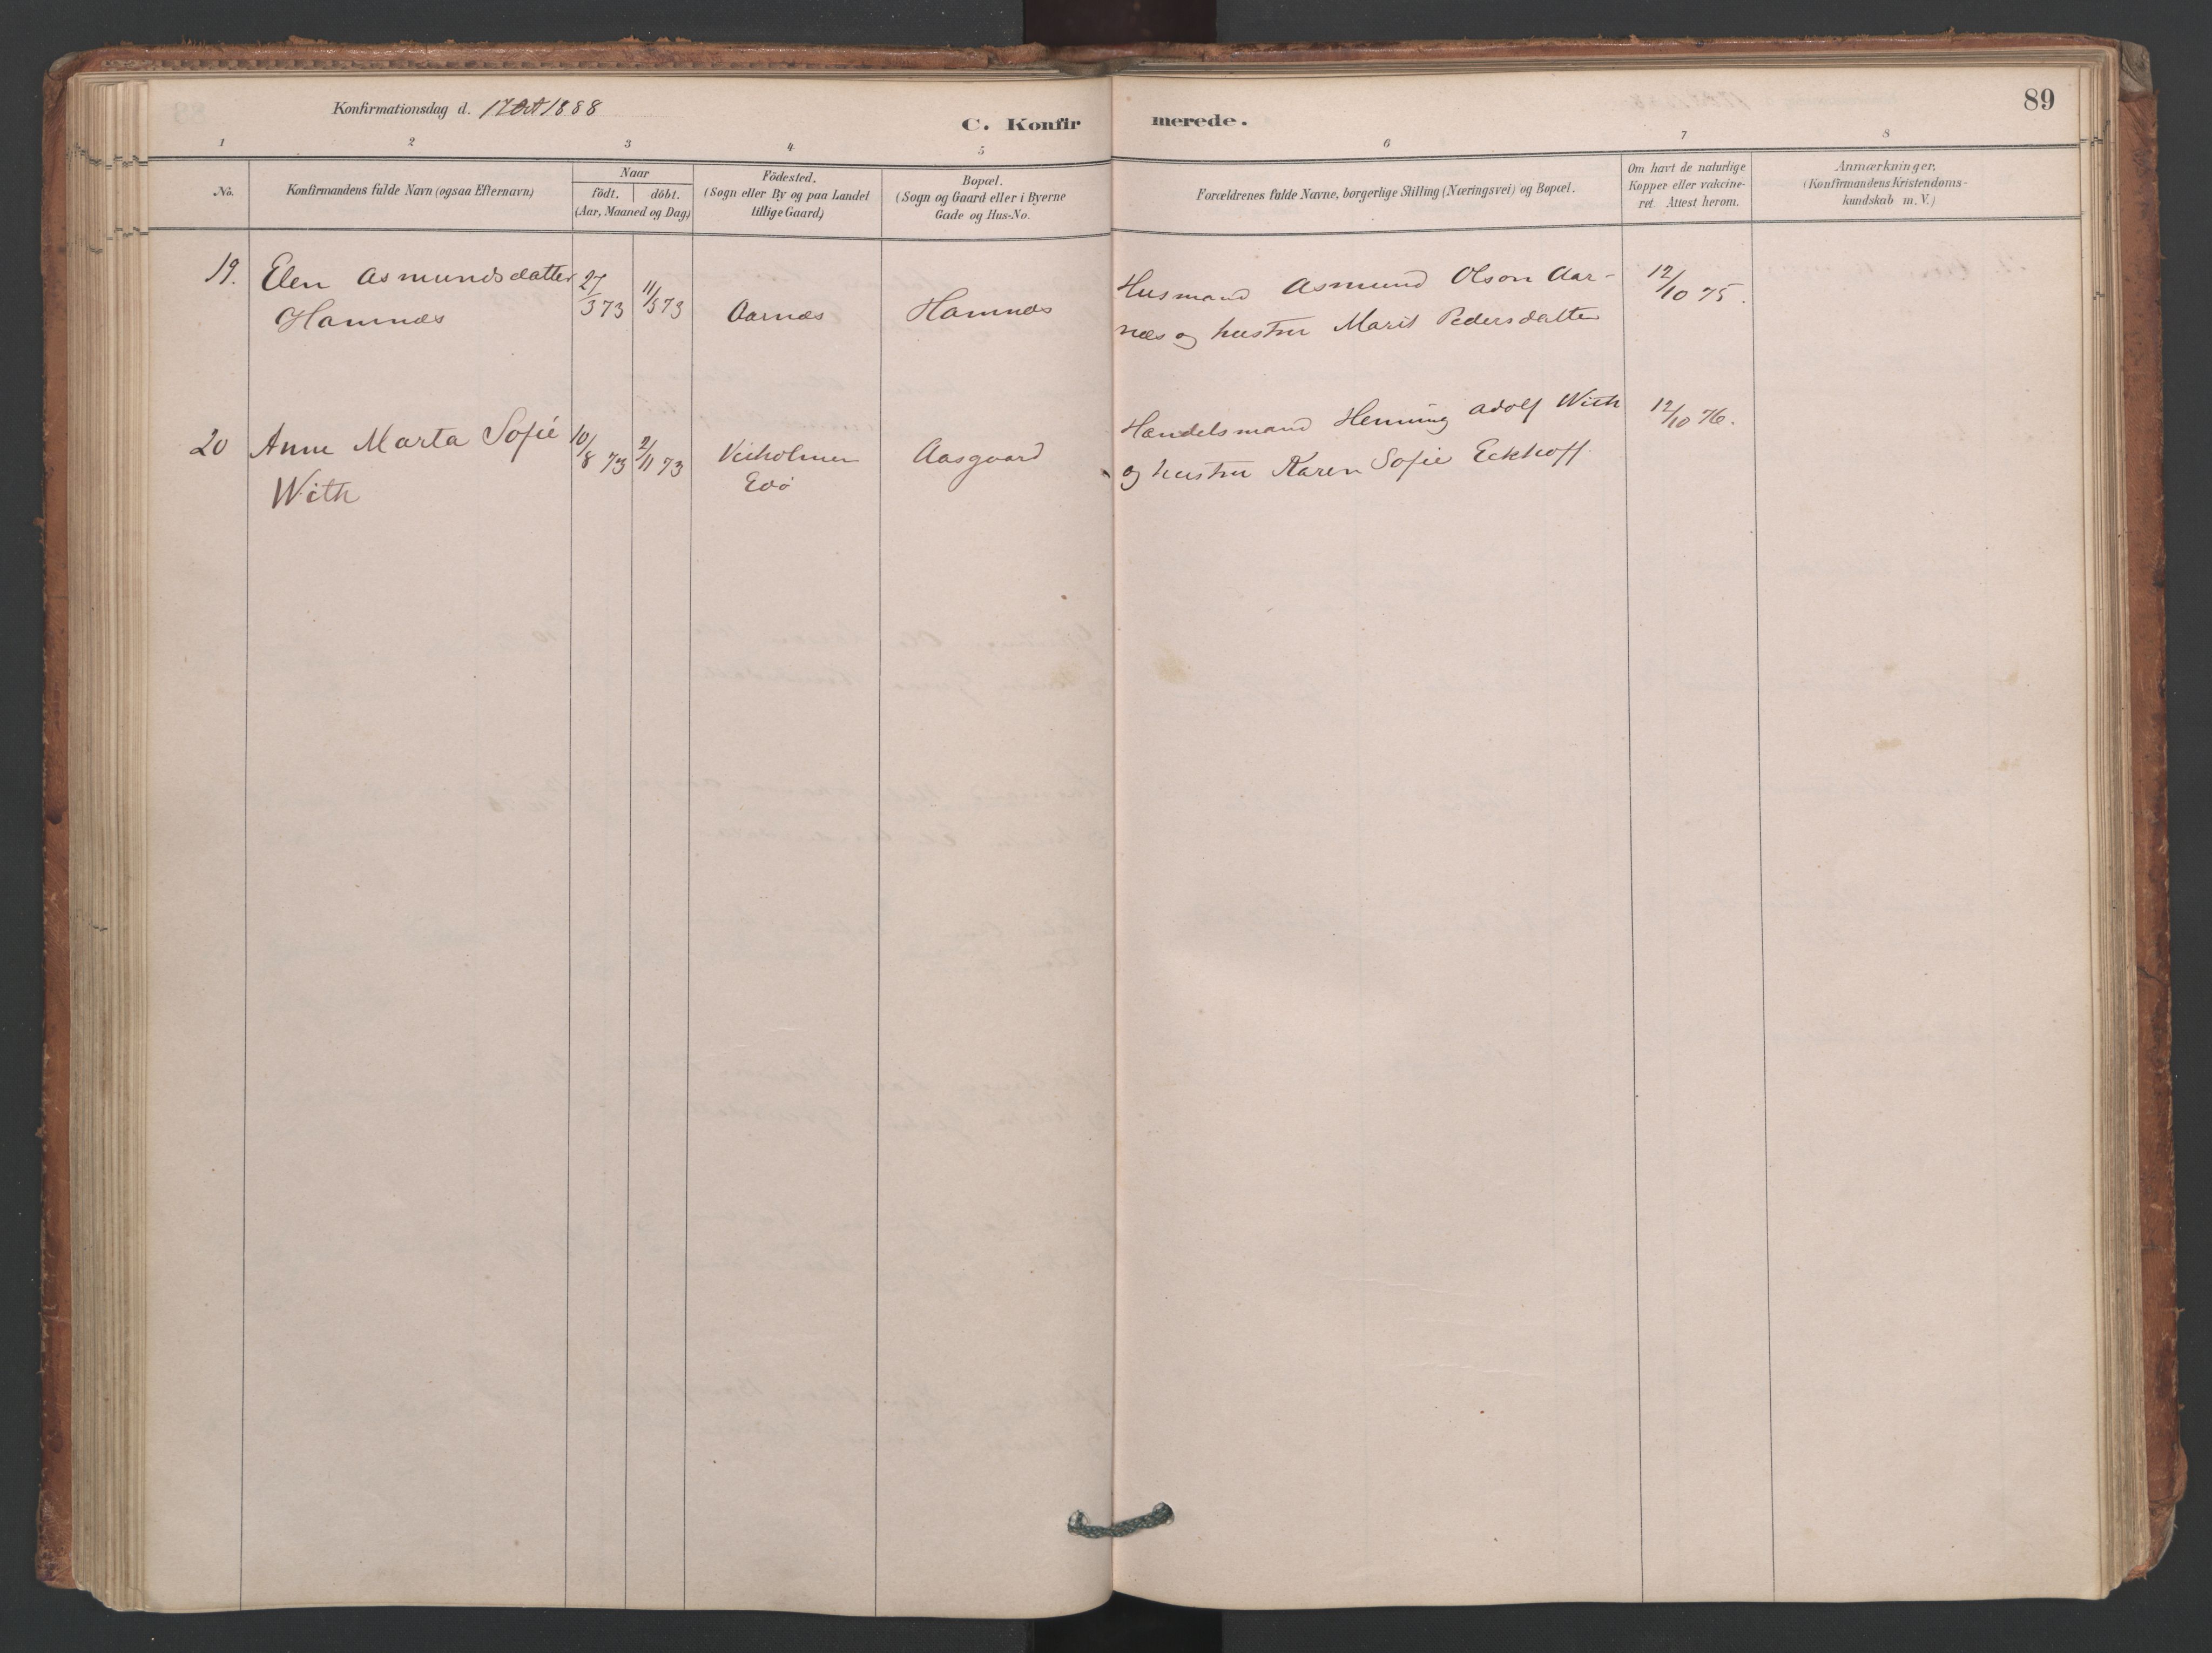 Konfirmationsdag d. 17 Oct 1888
C. Konfirmerede.
89
1 2 3 4 5 6 7 8
No.
Konfirmandens fulde Navn (ogsaa Efternavn)
Naar
födt. döbt.
(Aar, Maaned og Dag)
Födested.
(Sogn eller By og paa Landet
tillige Gaard)
Bopæl.
(Sogn og Gaard eller i Byerne
Gade og Hus-No.
Forældrenes fulde Navne, borgerlige Stilling (Næringsvei) og Bopæl.
Om havt de naturlige
Kopper eller vakcine-
ret. Attest herom.
Anmærkninger,
(Konfirmandens Kristendoms-
kundskab m. V.)
19. Elen Asmundsdatter 27/3 73 11/5 73 Aarnæs Hamnæs Husmand Asmund Olson Aar- 12/10 75.
Hamnæs næs og hustru Marit Pedersdatter
20 Anne Marta Sofie 10/8 73 2/11 73 Veiholmen Aasgaard Handelsmand Henning Adolf With 12/10 76.
With Edø og hustru Karen Sofie Eckhoff